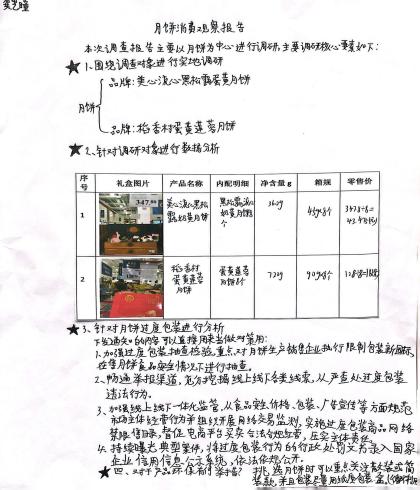 月饼消费观察报告
本次调查报告主要以月饼为中心进行调研,主要调研核心要素如下:
★1、围绕调查对象进行实地调研
品牌:美心流心黑松露蛋黄月饼
月饼
品牌:稻香村蛋黄莲蓉月饼
★2、针对调研对象进行数据分析
序号 礼盒图片 产品名称 内配明细 净含量g 箱规 零售价
1 347.80 美心流心黑松露奶黄月饼 黑松露流心奶黄月饼8个 360g 45g×8个 347.8÷8=
2 稻香村蛋黄莲蓉月饼 蛋黄莲蓉月饼8个 720g 90g×8个 128÷8=16元
★3、针对月饼过度包装进行分析
1、加强过度包装抽查检验,重点对月饼生产销售企业执行限制包装新国标,
在售月饼食品安全情况下进行抽查。
2、畅通举报渠道,充分挖掘线上线下各类线索,从严查处过度包装
违法行为。
3、加强线上线下一体化监管,从食品安全、价格、包装、广告宣传等方面规范
市场主体经营行为并组织开展网络交易监测,实施过度包装商品网络
禁限售目录,督促电商平台买卖合法合规经营,压实主体责任。
4、持续曝光典型案件,将过度包装行为的行政处罚文书录入国家
企业信用信息公示系统,依法依规公开。
★四、对于产品环保有何举措? 挑选月饼时可以重点关注散装或简
装款,并且包装尽量用纸皮包装盒